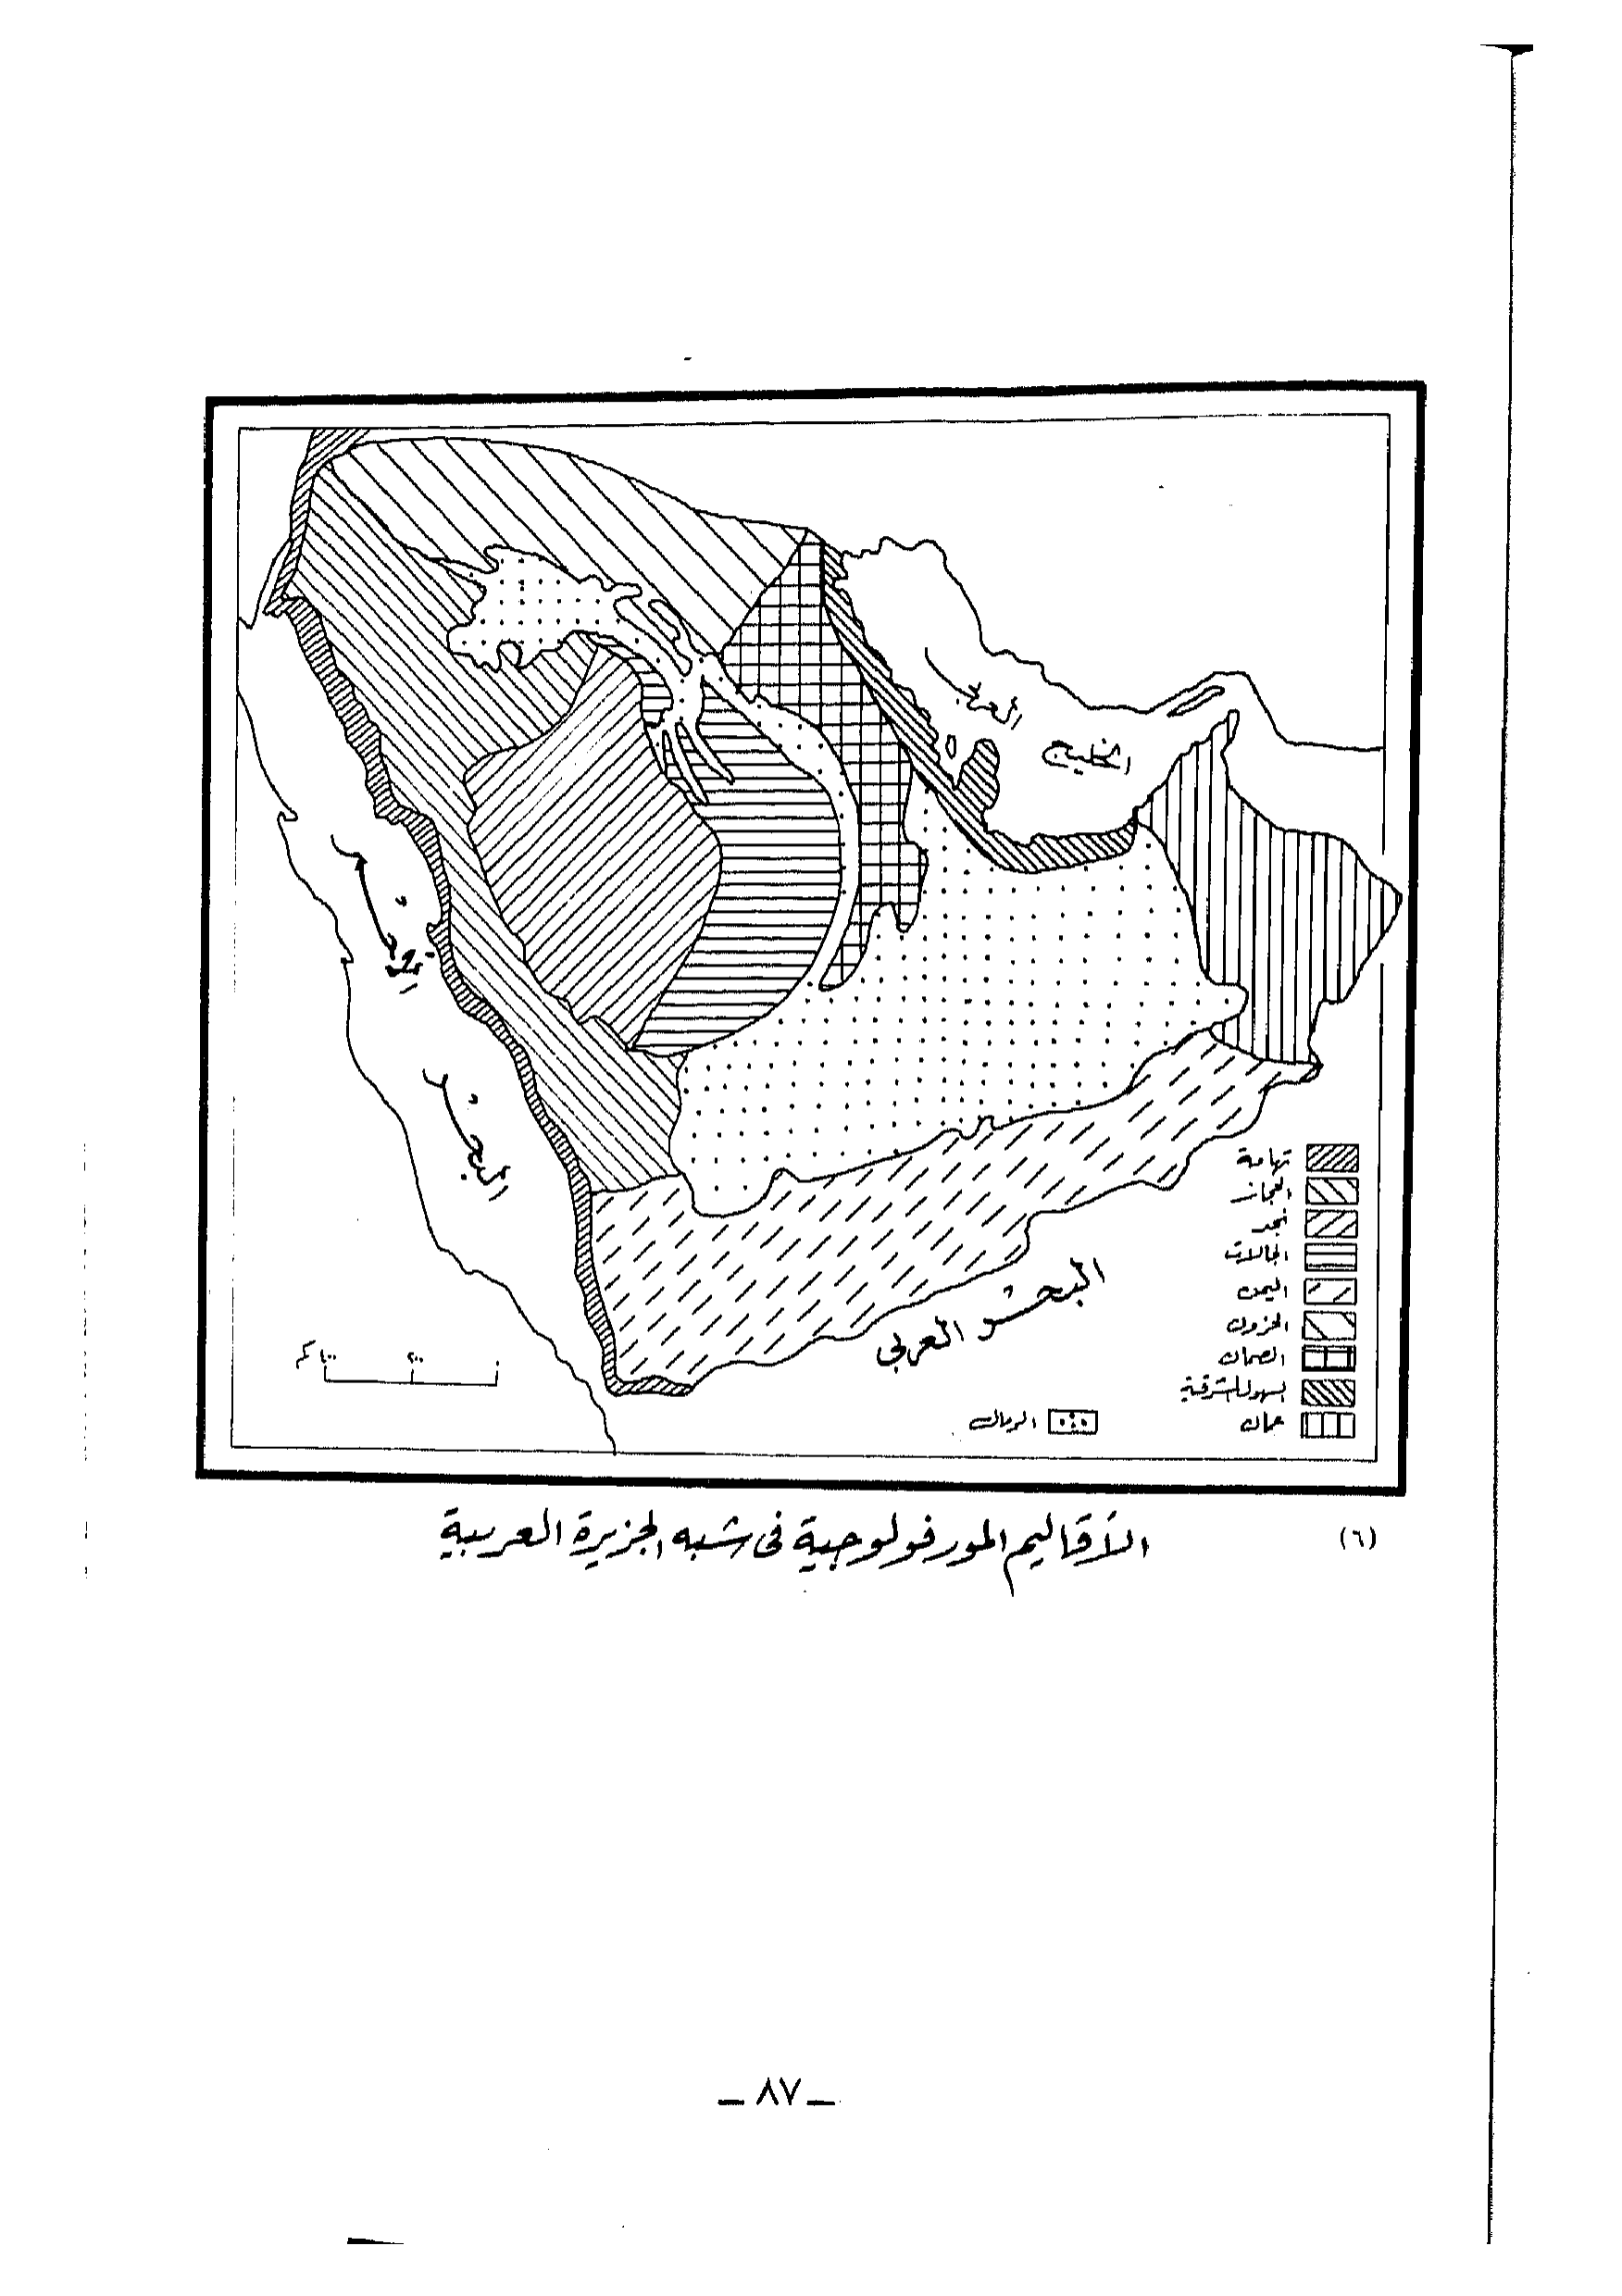 الخليج
العربي
البحر
الأحمر
البحر العربي
تهامة
الحجاز
نجد
الجالات
اليمن
الحزون
الصمان
السهول الشرقية
عمان
الرمال
٤٠٠ كم
٢٠٠
(٦) الأقاليم المورفولوجية فى شبه الجزيرة العربية
ـ ٨٧ ـ